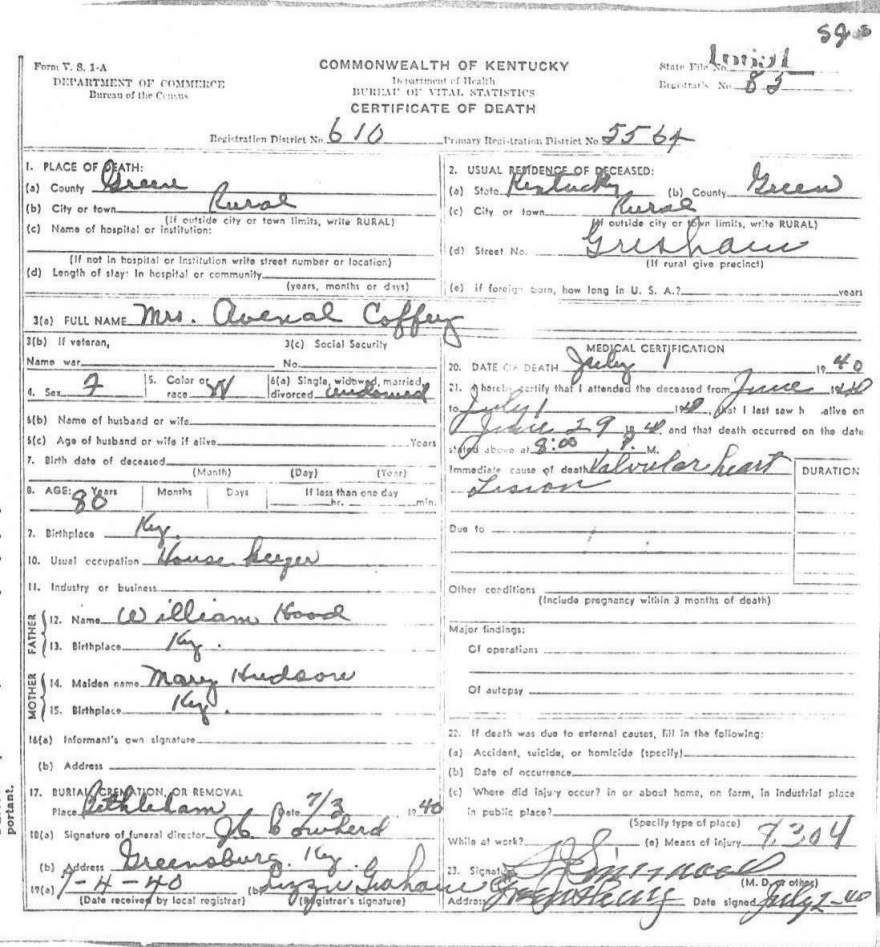 Form V. S. 1-A
DEPARTMENT OF COMMERCE
Bureau of the Census
COMMONWEALTH OF KENTUCKY
Department of Health
BUREAU OF VITAL STATISTICS
CERTIFICATE OF DEATH
State File No.
Registrar's No. 83
Registration District No. 610 Primary Registration District No. 5564
1. PLACE OF DEATH:
(a) County Greene
(b) City or town Rural
(If outside city or town limits, write RURAL)
(c) Name of hospital or institution:
(If not in hospital or institution write street number or location)
(d) Length of stay: In hospital or community
(years, months or days)
2. USUAL RESIDENCE OF DECEASED:
(a) State Kentucky (b) County Green
(c) City or town Rural
(If outside city or town limits, write RURAL)
(d) Street No. Gresham
(If rural give precinct)
(e) if foreign born, how long in U. S. A.? years
3(a) FULL NAME Mrs. Avenal Coffey
3(b) If veteran, 3(c) Social Security
Name war No.
4. Sex F 5. Color or race W 6(a) Single, widowed, married, divorced widowed
6(b) Name of husband or wife
6(c) Age of husband or wife if alive Years
7. Birth date of deceased
(Month) (Day) (Year)
8. AGE: Years 80 Months Days If less than one day
hr. min.
9. Birthplace Ky.
10. Usual occupation House keeper
11. Industry or business
FATHER
12. Name William Hood
13. Birthplace Ky.
MOTHER
14. Maiden name Mary Hudson
15. Birthplace Ky.
16(a) Informant's own signature
(b) Address
17. BURIAL, CREMATION, OR REMOVAL
Place Bethleham Date 7/3 1940
18(a) Signature of funeral director J. C. Cowherd
(b) Address Greensburg. Ky.
19(a) 7-4-40 (b) Lizzie Graham
(Date received by local registrar) (Registrar's signature)
MEDICAL CERTIFICATION
20. DATE OF DEATH July 1 1940
21. I hereby certify that I attended the deceased from June 1940
to July 1 1940, that I last saw h alive on
June 29 1940, and that death occurred on the date
stated above at 8:00 P. M.
Immediate cause of death Valvular heart
Lesion
DURATION
Due to
Other conditions
(Include pregnancy within 3 months of death)
Major findings:
Of operations
Of autopsy
22. If death was due to external causes, fill in the following:
(a) Accident, suicide, or homicide (specify)
(b) Date of occurrence
(c) Where did injury occur? in or about home, on farm, in industrial place
in public place?
(Specify type of place)
While at work? (e) Means of injury 7304
23. Signature
(M. D. or other)
Address Greensburg Date signed July 2-40
portant.